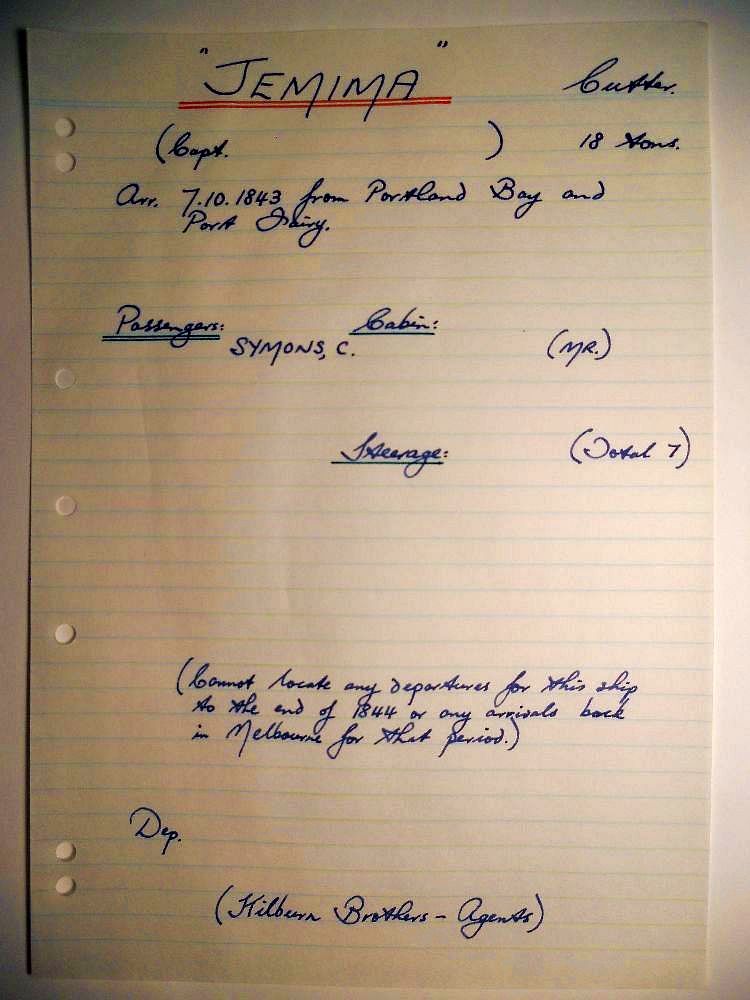 "JEMIMA" Cutter.
(Capt. ) 18 tons.
Arr. 7.10.1843 from Portland Bay and
Port Fairy.
Passengers: Cabin:
SYMONS, C. (MR.)
Steerage: (Total 7)
(Cannot locate any departures for this ship
to the end of 1844 or any arrivals back
in Melbourne for that period.)
Dep.
(Kilburn Brothers - Agents)